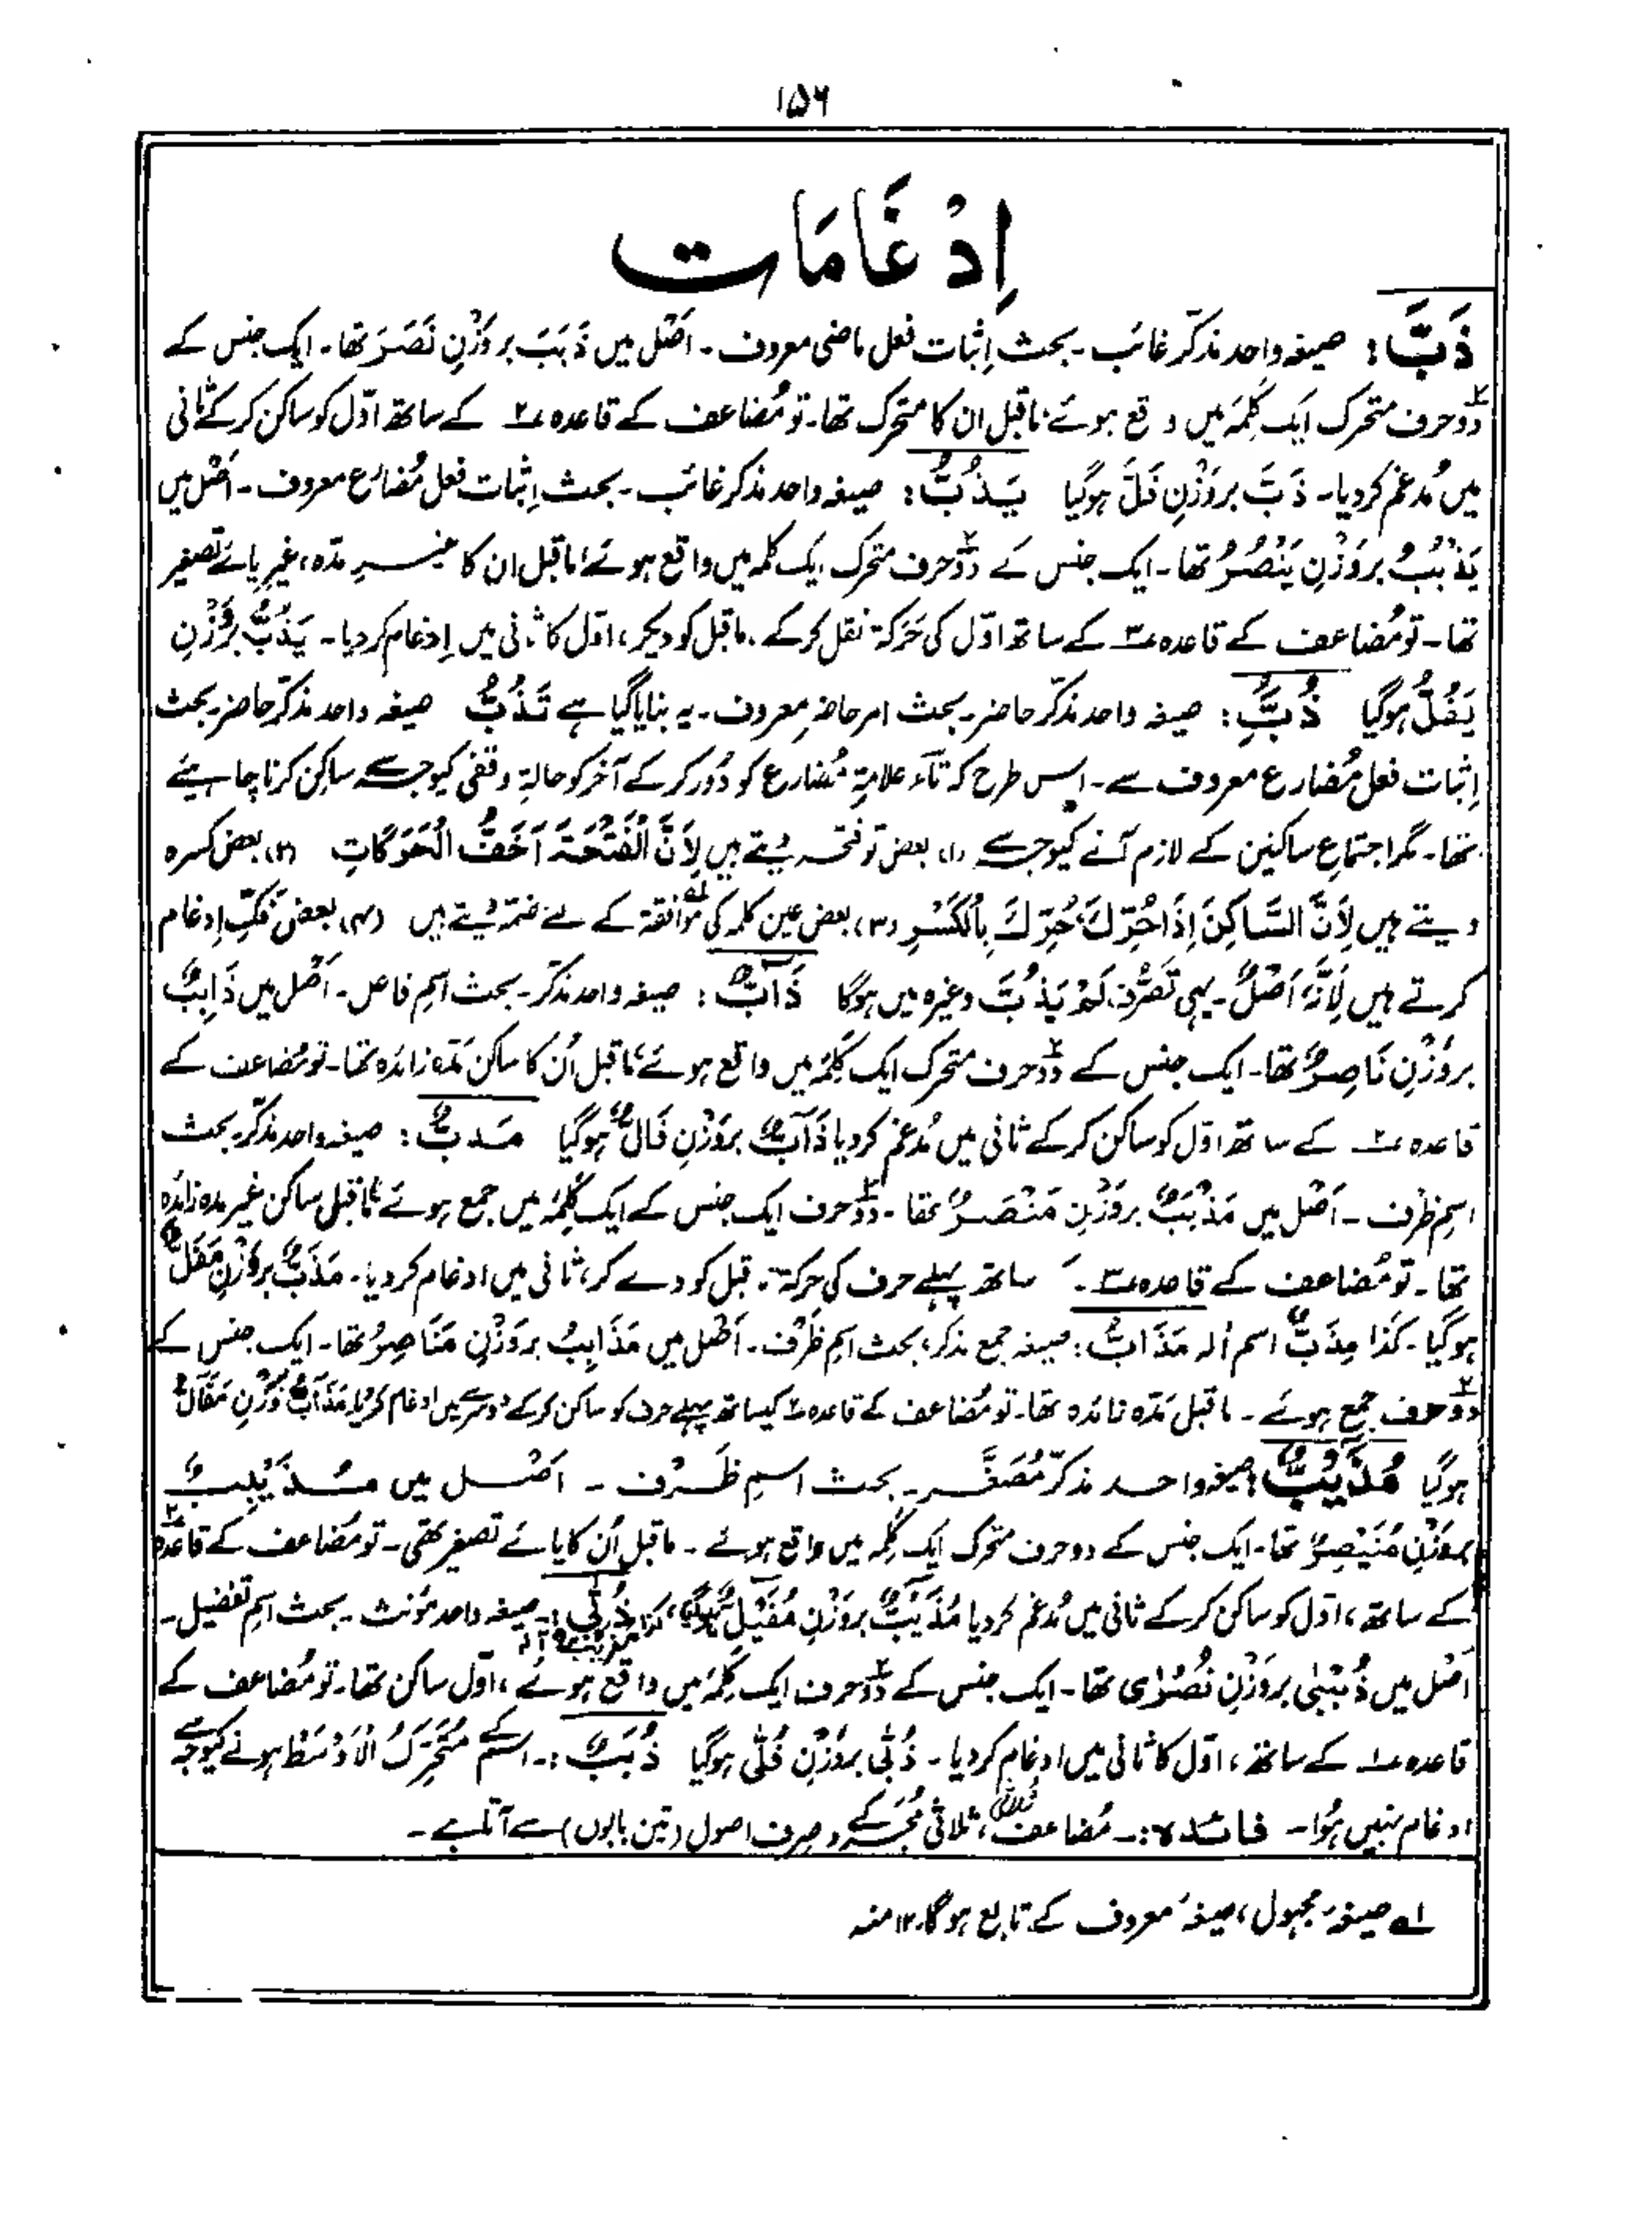 ۱۵۶
اِدْغَامَات
ذَبَّ: صیغہ واحد مذکّر غائب۔ بحث اِثبات فعل ماضی معروف۔ اَصْل میں ذَبَبَ بروَزْنِ نَصَرَ تھا۔ ایک جنس کے
دوؔ حرف متحرک ایک کلِمَہ میں وقع ہوئے، ماقبل ان کا متحرک تھا۔ تو مُضاعف کے قاعدہ ۲ کے ساتھ اوّل کو ساکن کر کے ثانی
میں مُدغم کردیا۔ ذَبَّ بروَزْنِ فَلَّ ہوگیا یَذُبُّ: صیغہ واحد مذکر غائب۔ بحث اِثبات فعل مُضارع معروف۔ اَصْل میں
یَذْبُبُ بروَزْنِ یَنْصُرُ تھا۔ ایک جنس کے دوؔ حرف متحرک ایک کلمہ میں واقع ہوئے، ماقبل ان کا غیرِ مدّہ، غیرِ یائے تصغیر
تھا۔ تو مُضاعف کے قاعدہ ۳ کے ساتھ اوّل کی حَرَکۃ نقل کرکے، ماقبل کو دیکر، اوّل کا ثانی میں اِدغام کردیا۔ یَذُبُّ بروَزْنِ
یَفُلُّ ہوگیا ذُبَّ: صیغہ واحد مذکّر حاضر۔ بحث امر حاضرِ معروف۔ یہ بنایا گیا ہے تَذُبُّ صیغہ واحد مذکّر حاضر۔ بحث
اِثبات فعل مُضارع معروف سے۔ اِس طرح کہ تَآء علامۃِ مُضارع کو دُور کرکے آخر کو حالۃِ وقفی کیوجہ سے ساکن کرنا چاہیئے
تھا۔ مگر اجتماعِ ساکنین کے لازم آنے کیوجہ سے (۱) بعض تو فتحہ دیتے ہیں لِاَنَّ الْفَتْحَۃَ اَخَفُّ الْحَرَکَاتِ (۲) بعض کسرہ
دیتے ہیں لِاَنَّ السَّاکِنَ اِذَا حُرِّکَ حُرِّکَ بِالْکَسْرِ (۳) بعض عین کلمہ کی مُوَافقۃ کے لئے ضمّہ دیتے ہیں (۴) بعض فَکِّ اِدغام
کرتے ہیں لِاَنَّہٗ اَصْلٌ۔ یہی تَصَرُّف لَمْ یَذُبَّ وغیرہ میں ہوگا ذَابٌّ: صیغہ واحد مذکّر۔ بحث اسم فاعل۔ اَصْل میں ذَابِبٌ
بروَزْنِ نَاصِرٌ تھا۔ ایک جنس کے دوؔ حرف متحرک ایک کلِمَہ میں واقع ہوئے، ماقبل اُن کا ساکن مَدّہ زائدہ تھا۔ تو مُضاعف کے
قاعدہ ۲ کے ساتھ اوّل کو ساکن کرکے ثانی میں مُدغم کردیا ذَآبٌّ بروَزْنِ فَالٌّ ہوگیا مَذَبٌّ: صیغہ واحد مذکّر۔ بحث
اسمِ ظَرْف۔ اَصْل میں مَذْبَبٌ بروَزْنِ مَنْصَرٌ تھا۔ دوؔ حرف ایک جنس کے ایک کلِمَہ میں جمع ہوئے ماقبل ساکن غیر مدہ زائدہ
تھا۔ تو مُضاعف کے قاعدہ ۳ ساتھ پہلے حرف کی حرکۃ قبل کو دے کر، ثانی میں ادغام کردیا۔ مَذَبٌّ بروَزْنِ مَفَلٌّ
ہوگیا۔ کَذَا مِذَبٌّ اسم اٰلہ مَذَابُّ: صیغہ جمع مذکر، بحث اسمِ ظَرْف۔ اَصْل میں مَذَابِبُ بروَزْنِ مَنَاصِرُ تھا۔ ایک جنس کے
دوؔ حرف جمع ہوئے۔ ماقبل مَدّہ زائدہ تھا۔ تو مُضاعف کے قاعدہ ۲ کیساتھ پہلے حرف کو ساکن کرکے دوسرے میں ادغام کردیا مَذَآبُّ بروَزْنِ مَفَالُّ
ہوگیا مُذَیْبٌّ: صیغہ واحد مذکّر مُصَغَّر۔ بحث اسمِ ظَرْف۔ اَصْل میں مُذَیْبِبٌ
بروَزْنِ مُنَیْصِرٌ تھا۔ ایک جنس کے دو حرف متحرک ایک کلِمہ میں واقع ہوئے۔ ماقبل اُن کا یائے تصغیر تھی۔ تو مُضاعف کے قاعدہ ۲
کے ساتھ، اوّل کو ساکن کرکے ثانی میں مُدغم کردیا مُذَیْبٌّ بروَزْنِ مُفَیْلٌّ ہوگیا، کذا ذُبّٰی:۔ صیغہ واحد مؤنث۔ بحث اسمِ تفضیل۔
اَصْل میں ذُبْبٰی بروَزْنِ نُصْرٰی تھا۔ ایک جنس کے دوؔ حرف ایک کلِمَہ میں واقع ہوئے، اوّل ساکن تھا۔ تو مُضاعف کے
قاعدہ ۱ کے ساتھ، اوّل کا ثانی میں ادغام کردیا۔ ذُبّٰی بروَزْنِ فُلّٰی ہوگیا ذُبَبٌ:۔ اسم مُتَحَرِّکُ الْاَوْسَط ہونے کیوجہ سے
ادغام نہیں ہُوا۔ فائدہ:۔ مُضاعف ثلاثی مُجَرَّد کے صِرف اصول (تین بابوں) سے آتا ہے۔
۱ صیغہ مجہول، صیغہ معروف کے تابع ہوگا۔ ۱۲ منہ